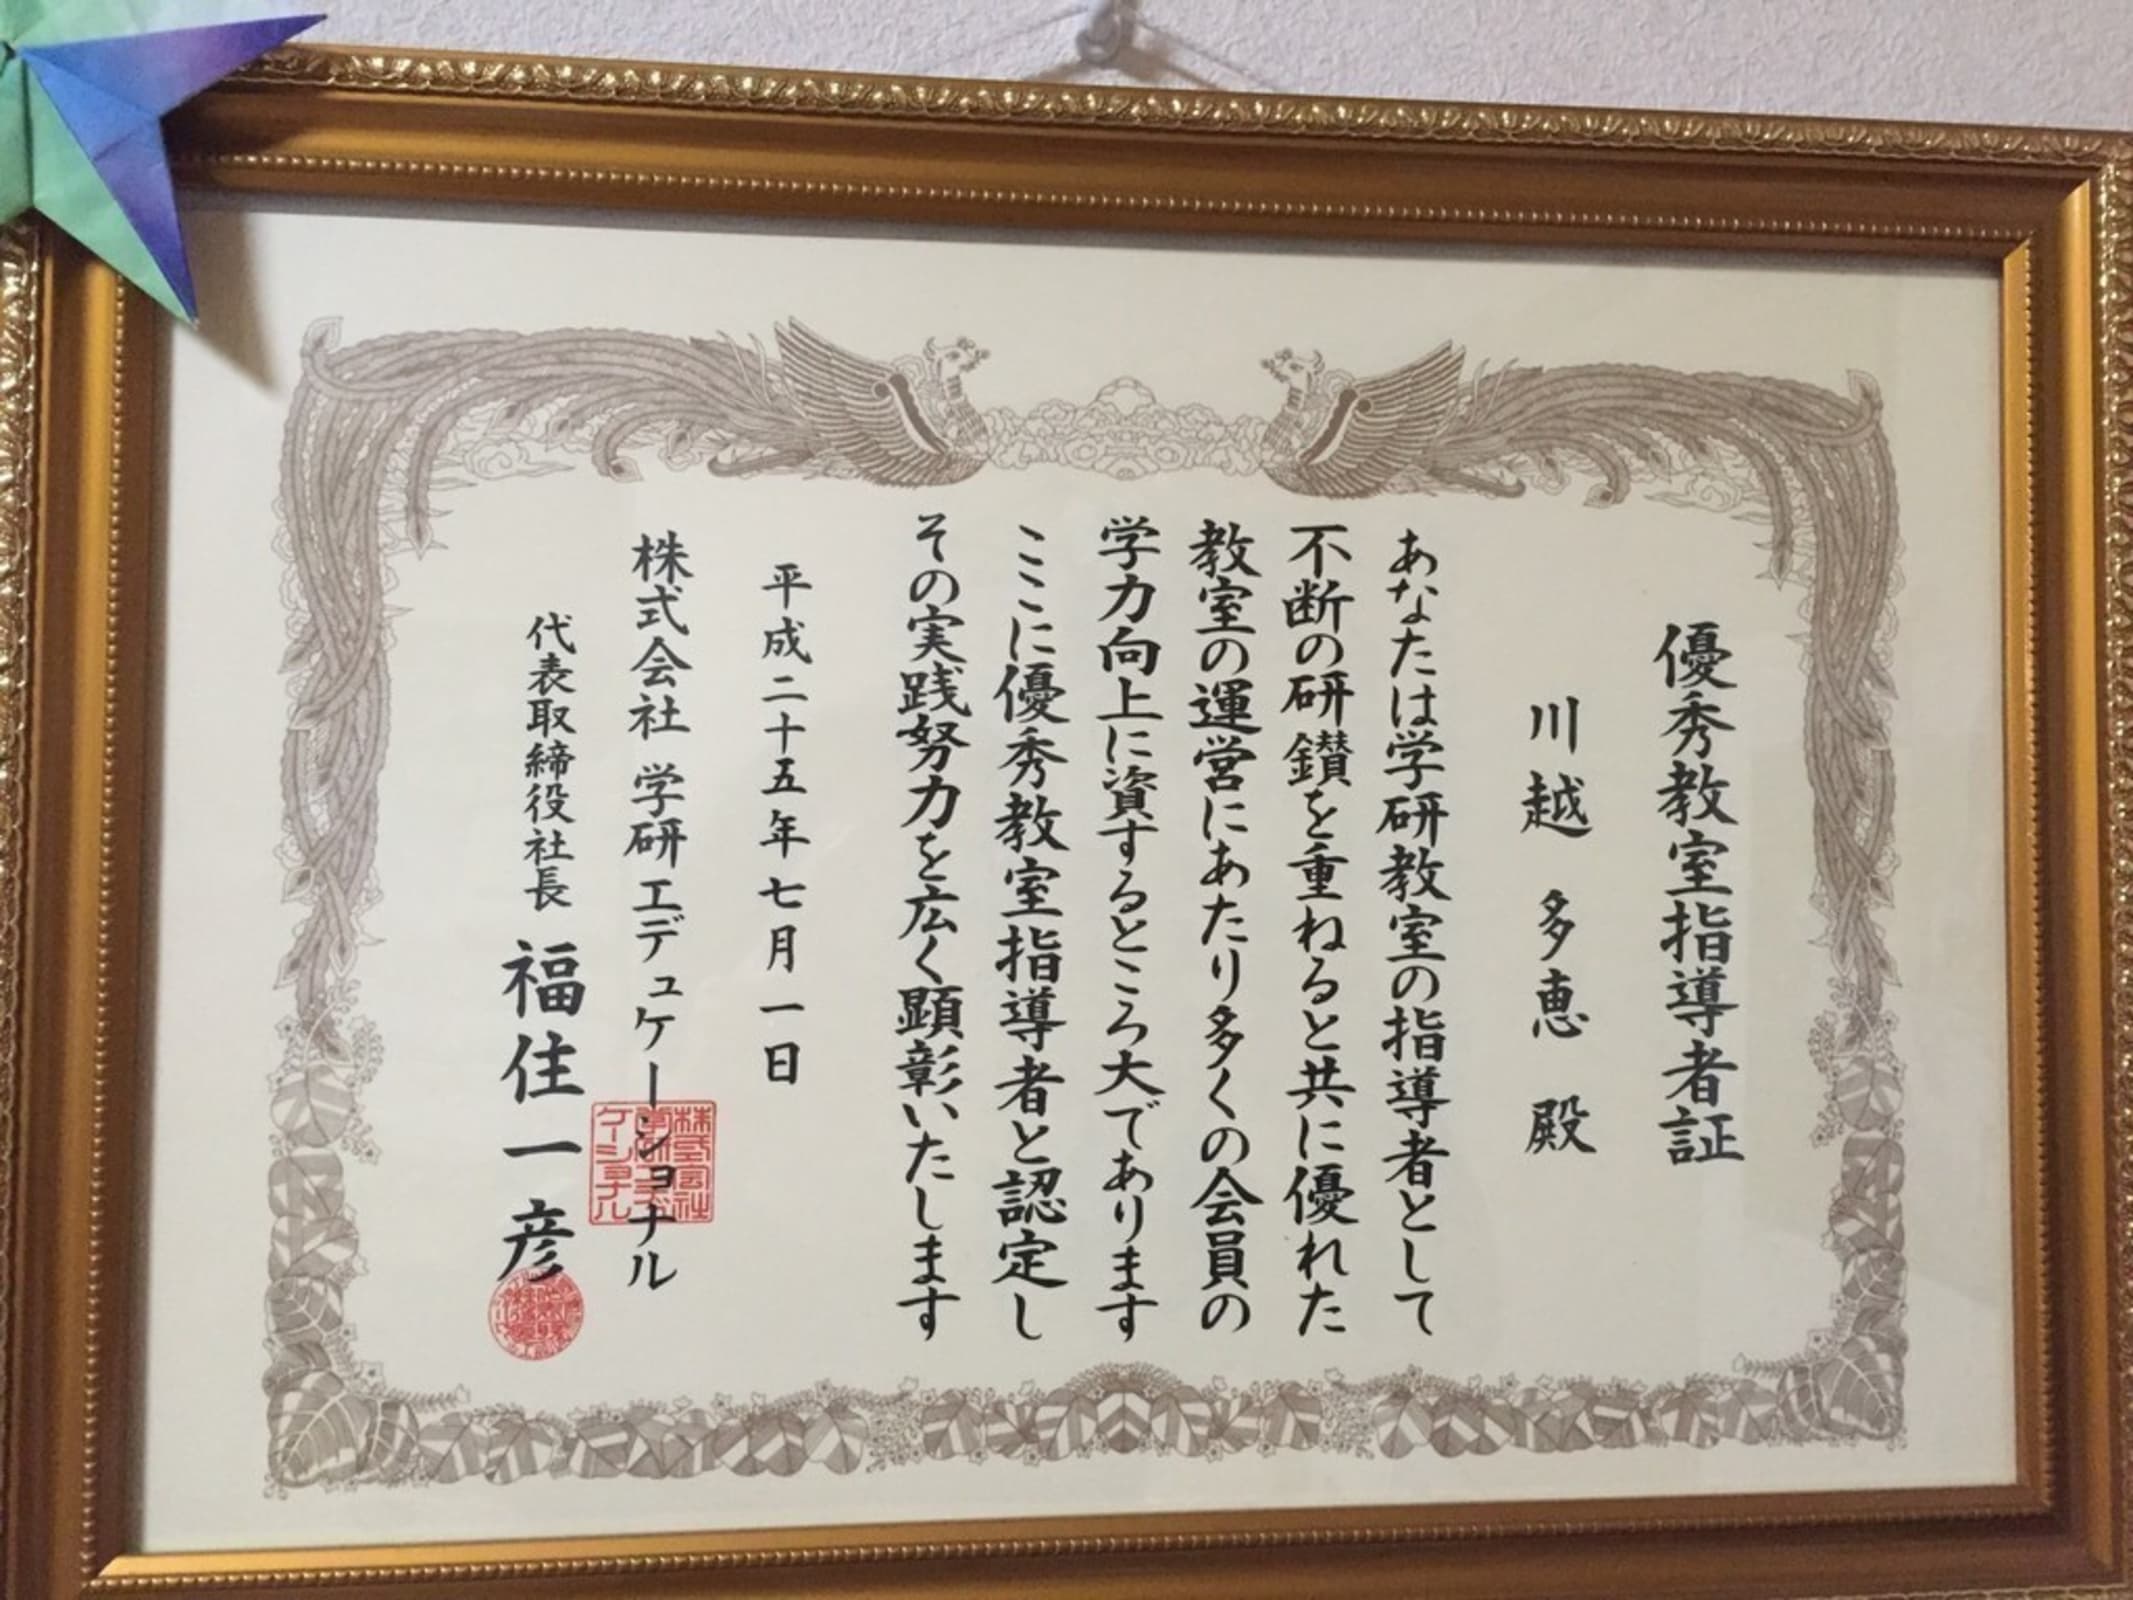 優秀教室指導者証
川越 多恵 殿
あなたは学研教室の指導者として
不断の研鑚を重ねると共に優れた
教室の運営にあたり多くの会員の
学力向上に資するところ大であります
ここに優秀教室指導者と認定し
その実践努力を広く顕彰いたします
平成二十五年七月一日
株式会社 学研エデュケーショナル
代表取締役社長 福住一彦